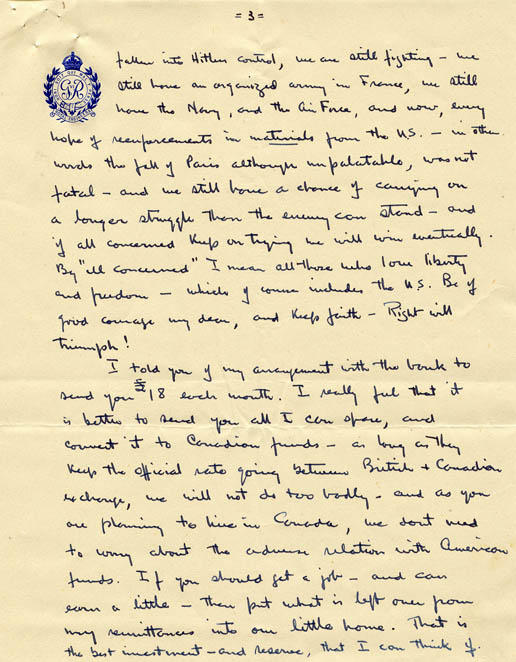 = 3 =
fallen into Hitlers control, we are still fighting - we
still have an organized army in France, we still
have the Navy, and the Air Force, and now, every
hope of reenforcements in materials from the U.S. - in other
words the fall of Paris although unpalatable, was not
fatal - and we still have a chance of carrying on
a longer struggle than the enemy can stand - and
if all concerned keep on trying we will win eventually.
By "all concerned" I mean all those who love liberty
and freedom - which of course includes the U.S. Be of
good courage my dear, and keep faith - Right will
triumph!
I told you of my arrangement with the bank to
send you 18 each month. I really feel that it
is better to send you all I can spare, and
convert it to Canadian funds - as long as they
keep the official rate going between British + Canadian
exchange, we will not do too badly - and as you
are planning to live in Canada, we dont need
to worry about the adverse relation with American
funds. If you should get a job - and can
earn a little - then put what is left over from
my remittances into our little home. That is
the best investment - and reserve, that I can think of.